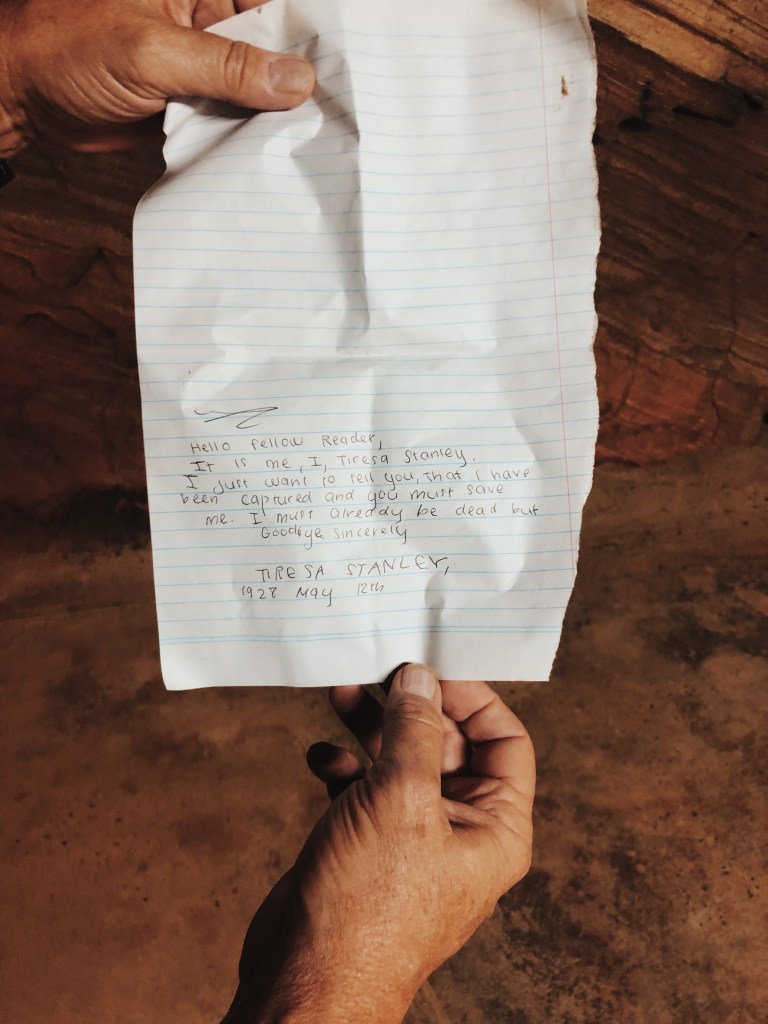 Hello fellow Reader,
It is me, I, Tiresa Stanley.
I just want to tell you, that I have
been captured and you must save
me. I must already be dead but
Goodbye sincerely
TIRESA STANLEY,
1928 May 12th